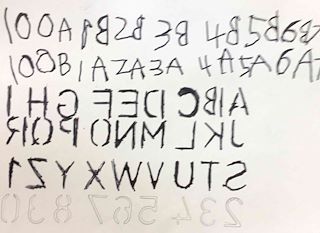 100A 1B2B 3B 4B5B6B
100B1A2A3A 4A5A6A
ABCDEFGHI
JKL MNO PQR
STUVWXYZ1
234 567 8